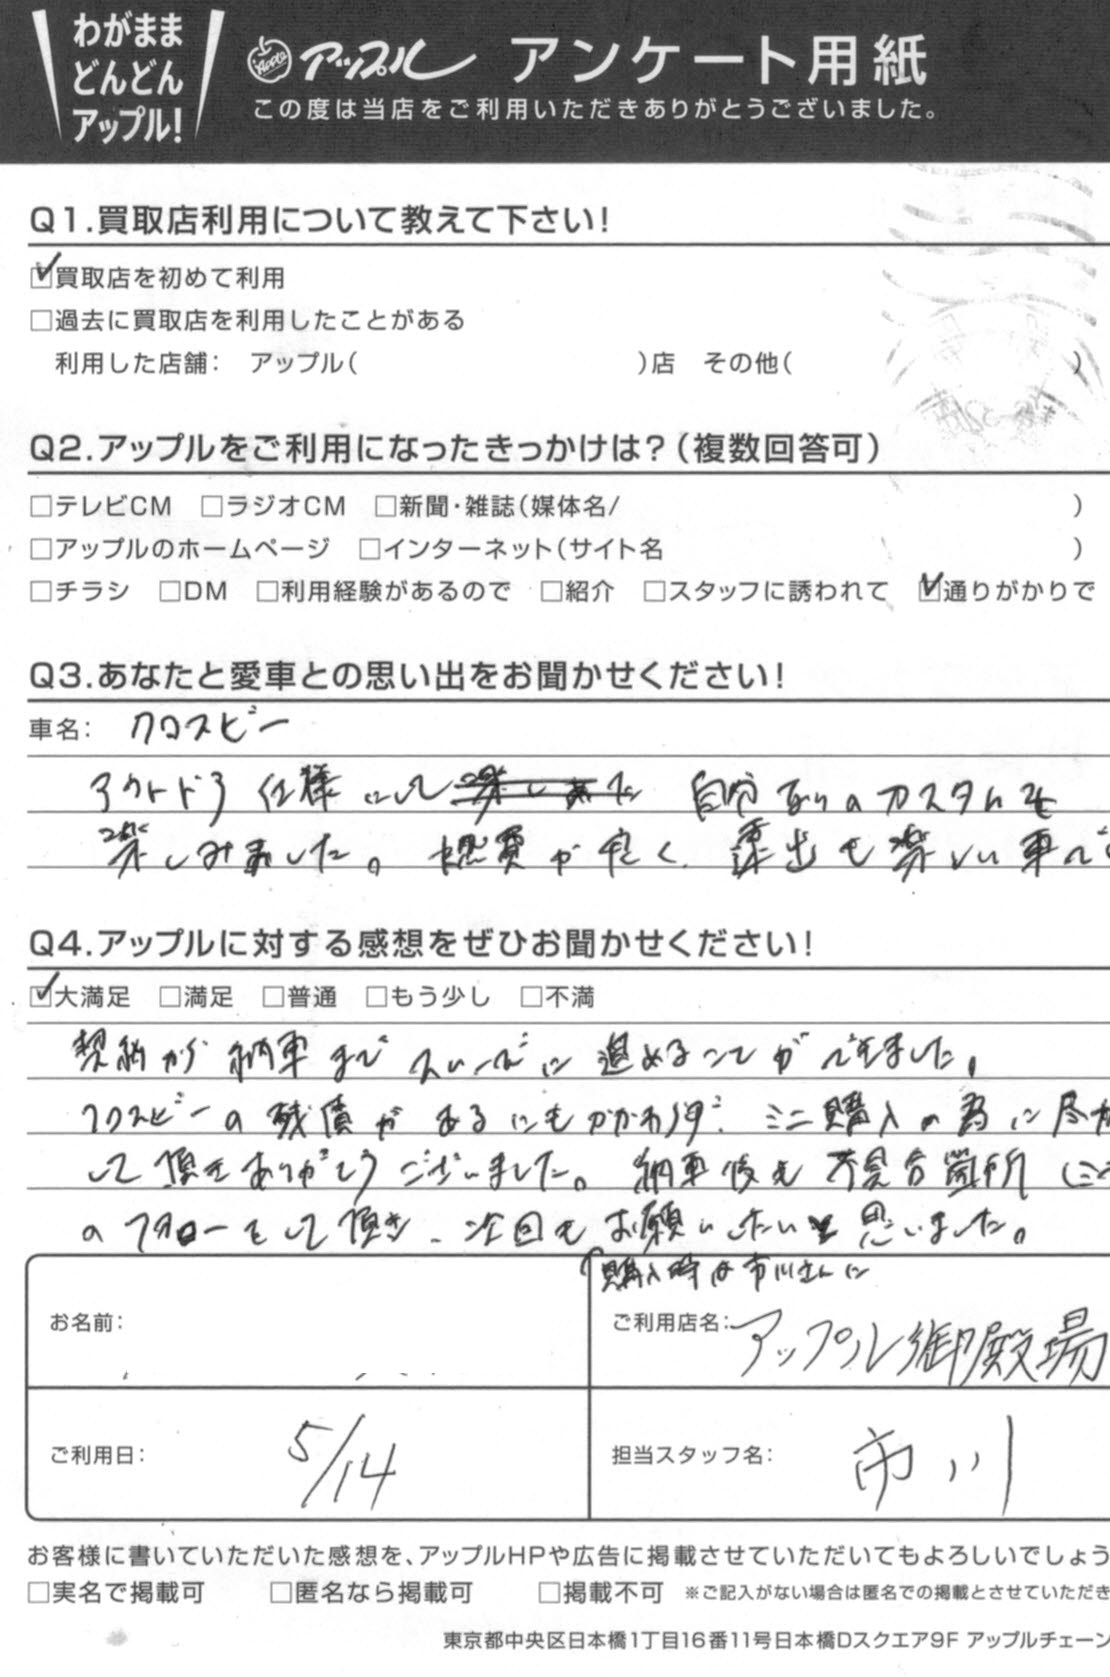 わがまま
どんどん
アップル!
Apple アップル アンケート用紙
この度は当店をご利用いただきありがとうございました。
Q1.買取店利用について教えて下さい!
☑買取店を初めて利用
□過去に買取店を利用したことがある
利用した店舗: アップル( )店 その他( )
Q2.アップルをご利用になったきっかけは?(複数回答可)
□テレビCM □ラジオCM □新聞・雑誌(媒体名/ )
□アップルのホームページ □インターネット(サイト名 )
□チラシ □DM □利用経験があるので □紹介 □スタッフに誘われて ☑通りがかりで
Q3.あなたと愛車との思い出をお聞かせください!
車名: クロスビー
アウトドア仕様にして 自分なりのカスタムを
楽しみました。燃費が良く、遠出も楽しい車で
Q4.アップルに対する感想をぜひお聞かせください!
☑大満足 □満足 □普通 □もう少し □不満
契約から納車までスムーズに進めることができました。
クロスビーの残債があるにもかかわらず、ミニ購入の為に尽力
して頂きありがとうございました。納車後も不具合箇所(ミニ
のフォローをして頂き、次回もお願いしたいと思いました。
購入時は市川さんに
お名前:
ご利用店名: アップル御殿場
ご利用日: 5/14
担当スタッフ名: 市川
お客様に書いていただいた感想を、アップルHPや広告に掲載させていただいてもよろしいでしょう
□実名で掲載可 □匿名なら掲載可 □掲載不可 ※ご記入がない場合は匿名での掲載とさせていただき
東京都中央区日本橋1丁目16番11号日本橋Dスクエア9F アップルチェーン